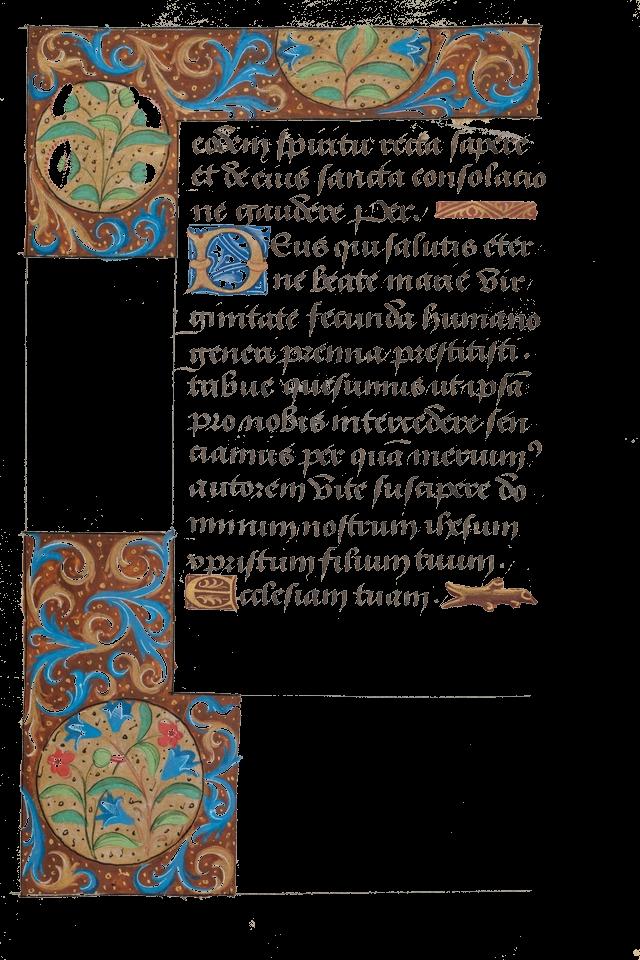 eodem spiritu recta sapere
et de eius sancta consolacio
ne gaudere Per.
Deus qui salutis eter
ne beate marie vir
ginitate fecunda humano
generi premia prestitisti.
tribue quesumus ut ipsā
pro nobis intercedere sen
ciamus per quā meruimꝰ
autorem vite suscipere do
minum nostrum ihesum
xpristum filium tuum.
Ecclesiam tuam.